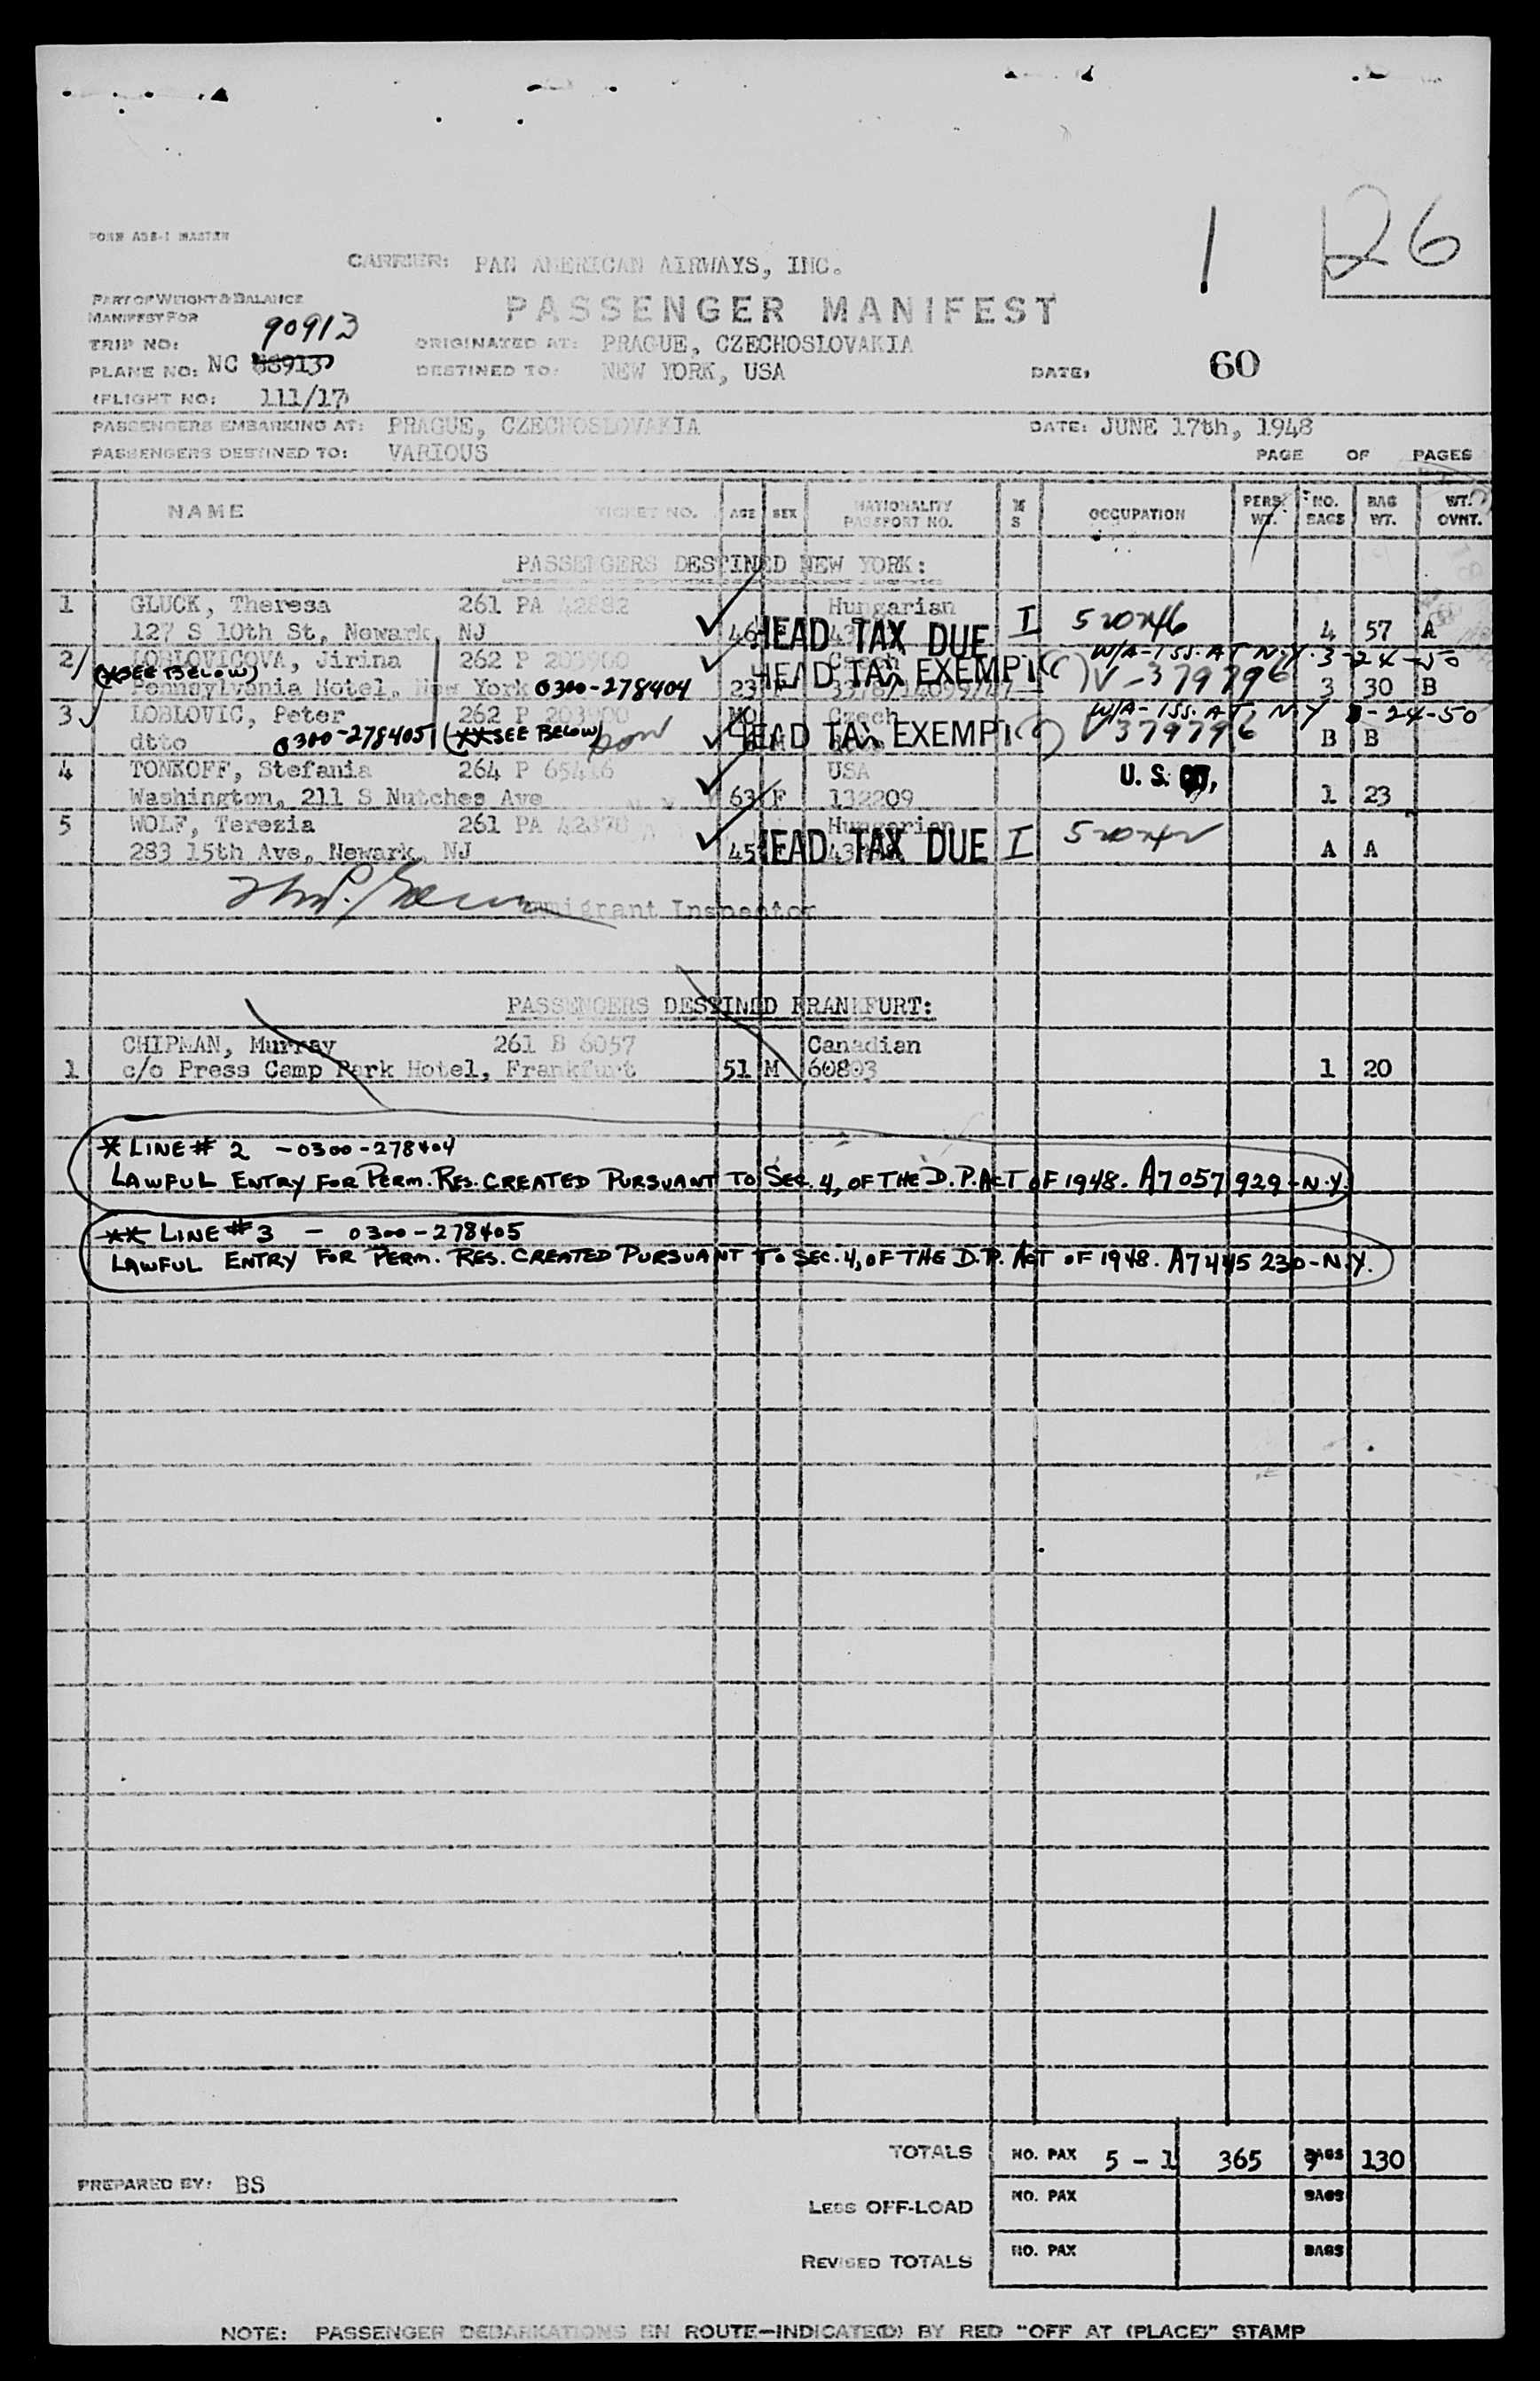 1 26
FORM ASB-1 MASTER
CARRIER: PAN AMERICAN AIRWAYS, INC.
PART OF WEIGHT & BALANCE
MANIFEST FOR
PASSENGER MANIFEST
TRIP NO: 90913
ORIGINATED AT: PRAGUE, CZECHOSLOVAKIA
PLANE NO: NC 88913
DESTINED TO: NEW YORK, USA
DATE: 60
(FLIGHT NO: 111/17
PASSENGERS EMBARKING AT: PRAGUE, CZECHOSLOVAKIA DATE: JUNE 17th, 1948
PASSENGERS DESTINED TO: VARIOUS PAGE OF PAGES
NAME TICKET NO. AGE SEX NATIONALITY PASSPORT NO. M S OCCUPATION PERS. WT. NO. BAGS BAG WT. WT. OVNT.
PASSENGERS DESTINED NEW YORK:
1 GLUCK, Theresa 261 PA 42882 Hungarian
127 S 10th St, Newark, NJ 46 HEAD TAX DUE I 4 57 A
2 LOBLOVICOVA, Jirina 262 P 203900 Czech W/A-ISS. AT N.Y. 3-24-50
(*SEE BELOW)
Pennsylvania Hotel, New York 0300-278404 23 HEAD TAX EXEMPT V-379796 3 30 B
3 LOBLOVIC, Peter 262 P 203900 MO Czech W/A-ISS. AT. N.Y 3-24-50
dtto 0300-278405 (**SEE BELOW) HEAD TAX EXEMPT V379796 B B
4 TONKOFF, Stefania 264 P 65416 USA U.S.
Washington, 211 S Nutches Ave 63 F 132209 1 23
5 WOLF, Terezia 261 PA 42878 Hungarian
283 15th Ave, Newark, NJ 45 HEAD TAX DUE I A A
Immigrant Inspector
PASSENGERS DESTINED FRANKFURT:
CHIPMAN, Murray 261 B 6057 Canadian
1 c/o Press Camp Park Hotel, Frankfurt 51 M 60803 1 20
* LINE # 2 - 0300-278404
LAWFUL ENTRY FOR PERM. RES. CREATED PURSUANT TO SEC. 4, OF THE D.P. ACT OF 1948. A7057929-N.Y.
** LINE # 3 - 0300-278405
LAWFUL ENTRY FOR PERM. RES. CREATED PURSUANT TO SEC. 4, OF THE D.P. ACT OF 1948. A7445230-N.Y.
TOTALS NO. PAX 5 - 1 365 BAGS 9 130
PREPARED BY: BS
LESS OFF-LOAD NO. PAX BAGS
REVISED TOTALS NO. PAX BAGS
NOTE: PASSENGER DEBARKATIONS EN ROUTE—INDICATE(D) BY RED "OFF AT (PLACE)" STAMP